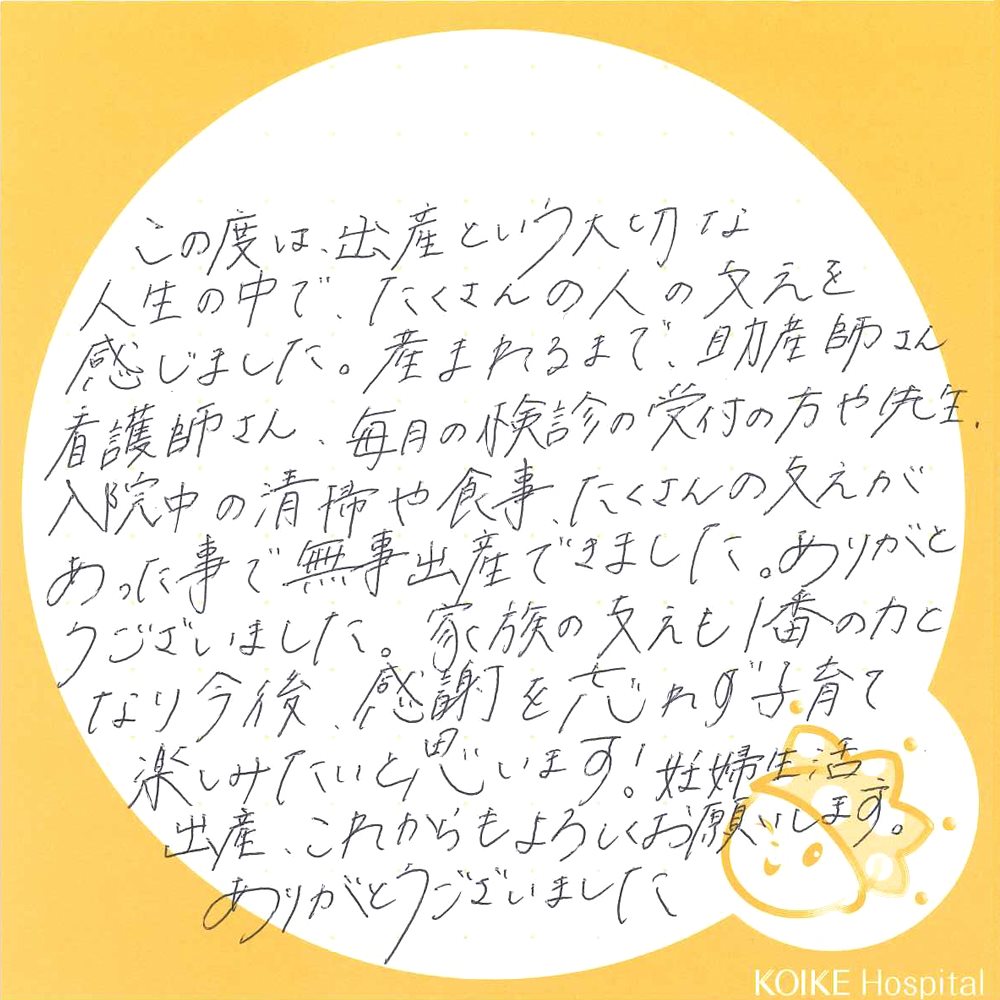 この度は、出産という大切な
人生の中で、たくさんの人の支えを
感じました。産まれるまで、助産師さん
看護師さん、毎月の検診の受付の方や先生、
入院中の清掃や食事、たくさんの支えが
あった事で無事出産できました。ありがと
うございました。家族の支えも1番の力と
なり今後、感謝を忘れず子育て
楽しみたいと思います！妊婦生活
出産、これからもよろしくお願いします。
ありがとうございました
KOIKE Hospital